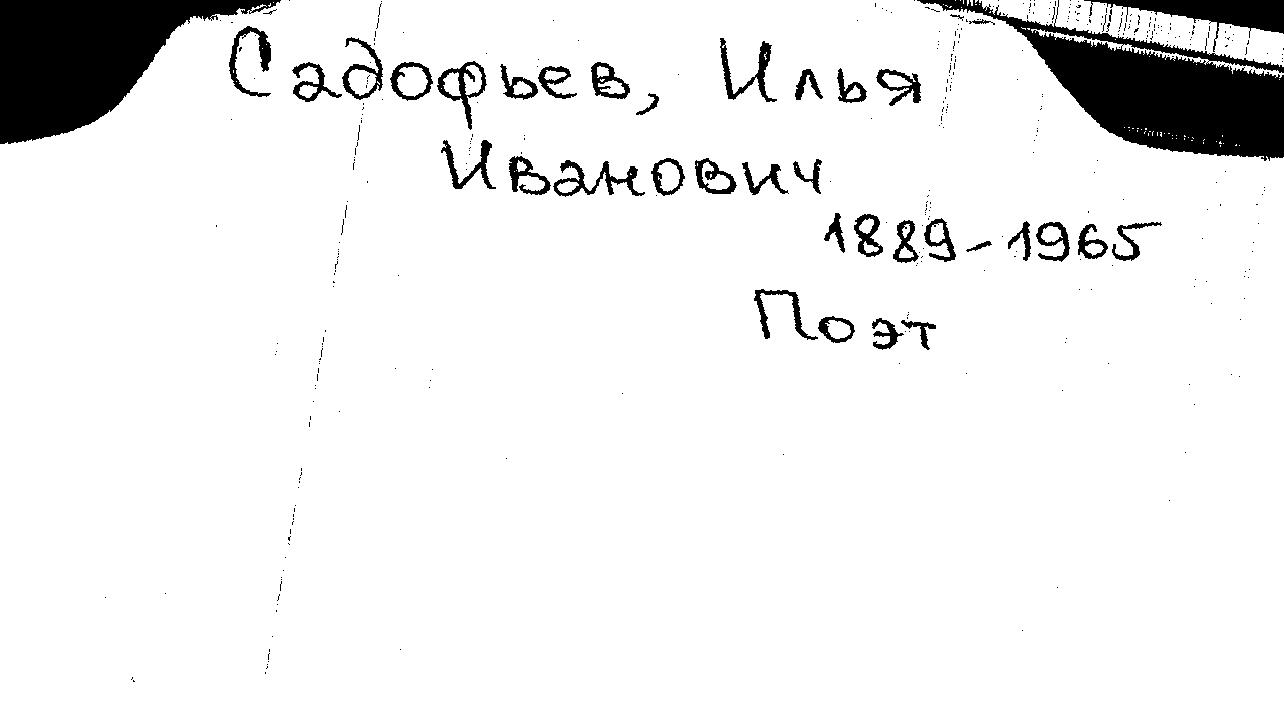 Садофьев, Илья
Иванович
1889-1965
Поэт